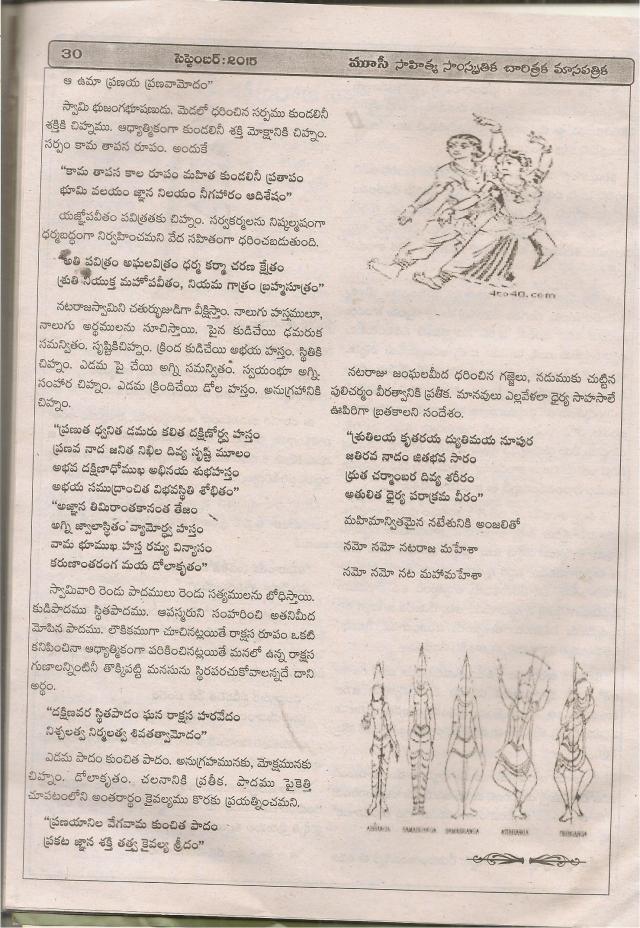 30
సెప్టెంబర్:2015
మూసీ సాహిత్య సాంస్కృతిక చారిత్రక మాసపత్రిక
ఆ ఉమా ప్రణయ ప్రణవామోదం”
స్వామి భుజంగభూషణుడు. మెడలో ధరించిన సర్పము కుండలినీ
శక్తికి చిహ్నము. ఆధ్యాత్మికంగా కుండలినీ శక్తి మోక్షానికి చిహ్నం.
సర్పం కామ తాపన రూపం. అందుకే
“కామ తాపన కాల రూపం మహిత కుండలినీ ప్రతాపం
భూమి వలయం జ్ఞాన నిలయం నీగహారం ఆదిశేషం”
యజ్ఞోపవీతం పవిత్రతకు చిహ్నం. సర్వకర్మలను నిష్కల్మషంగా
ధర్మబద్ధంగా నిర్వహించమని వేద సహితంగా ధరించబడుతుంది.
“అతి పవిత్రం అఘలవిత్రం ధర్మ కర్మా చరణ క్షేత్రం
శ్రుతి నియుక్త మహోపవీతం, నియమ గాత్రం బ్రహ్మసూత్రం”
నటరాజస్వామిని చతుర్భుజుడిగా వీక్షిస్తాం. నాలుగు హస్తములూ,
నాలుగు అర్థములను సూచిస్తాయి. పైన కుడిచేయి ఢమరుక
సమన్వితం. సృష్టికిచిహ్నం. క్రింద కుడిచేయి అభయ హస్తం. స్థితికి
చిహ్నం. ఎడమ పై చేయి అగ్ని సమన్వితం. స్వయంభూ అగ్ని.
సంహార చిహ్నం. ఎడమ క్రిందిచేయి డోల హస్తం. అనుగ్రహానికి
చిహ్నం.
“ప్రణుత ధ్వనిత డమరు కలిత దక్షిణోర్ధ్వ హస్తం
ప్రణవ నాద జనిత నిఖిల దివ్య సృష్టి మూలం
అభవ దక్షిణాధోముఖ అభినయ శుభహస్తం
అభయ సముద్రాంచిత విభవస్థితి శోభితం”
“అజ్ఞాన తిమిరాంతకానంత తేజం
అగ్ని జ్వాలాస్థితం వ్యామోర్ధ్వ హస్తం
వామ భూముఖ హస్త రమ్య విన్యాసం
కరుణాంతరంగ మయ డోలాకృతం”
స్వామివారి రెండు పాదములు రెండు సత్యములను బోధిస్తాయి.
కుడిపాదము స్థితపాదము. ఆపస్మరుని సంహరించి అతనిమీద
మోపిన పాదము. లౌకికముగా చూచినట్లయితే రాక్షస రూపం ఒకటి
కనిపించినా ఆధ్యాత్మికంగా పరికించినట్లయితే మనలో ఉన్న రాక్షస
గుణాలన్నింటినీ తొక్కిపట్టి మనసును స్థిరపరచుకోవాలన్నదే దాని
అర్థం.
“దక్షిణవర స్థితపాదం ఘన రాక్షస హరవేదం
నిశ్చలత్వ నిర్మలత్వ శివతత్వామోదం”
ఎడమ పాదం కుంచిత పాదం. అనుగ్రహమునకు, మోక్షమునకు
చిహ్నం. డోలాకృతం. చలనానికి ప్రతీక. పాదము పైకెత్తి
చూపటంలోని అంతరార్థం కైవల్యము కొరకు ప్రయత్నించమని.
“ప్రణయానిల వేగవామ కుంచిత పాదం
ప్రకట జ్ఞాన శక్తి తత్త్వ కైవల్య శ్రీదం”
4to40.com
నటరాజు జంఘలమీద ధరించిన గజ్జెలు, నడుముకు చుట్టిన
పులిచర్మం వీరత్వానికి ప్రతీక. మానవులు ఎల్లవేళలా ధైర్య సాహసాలే
ఊపిరిగా బ్రతకాలని సందేశం.
“శ్రుతిలయ కృతరయ ద్యుతిమయ నూపుర
జతిరవ నాదం జితభవ సారం
ధ్రుత చర్మాంబర దివ్య శరీరం
అతులిత ధైర్య పరాక్రమ వీరం”
మహిమాన్వితమైన నటేశునికి అంజలితో
నమో నమో నటరాజ మహేశా
నమో నమో నట మహామహేశా
ABHANGA SAMABHANGA SAMABHANGA ATIBHANGA TRIBHANGA